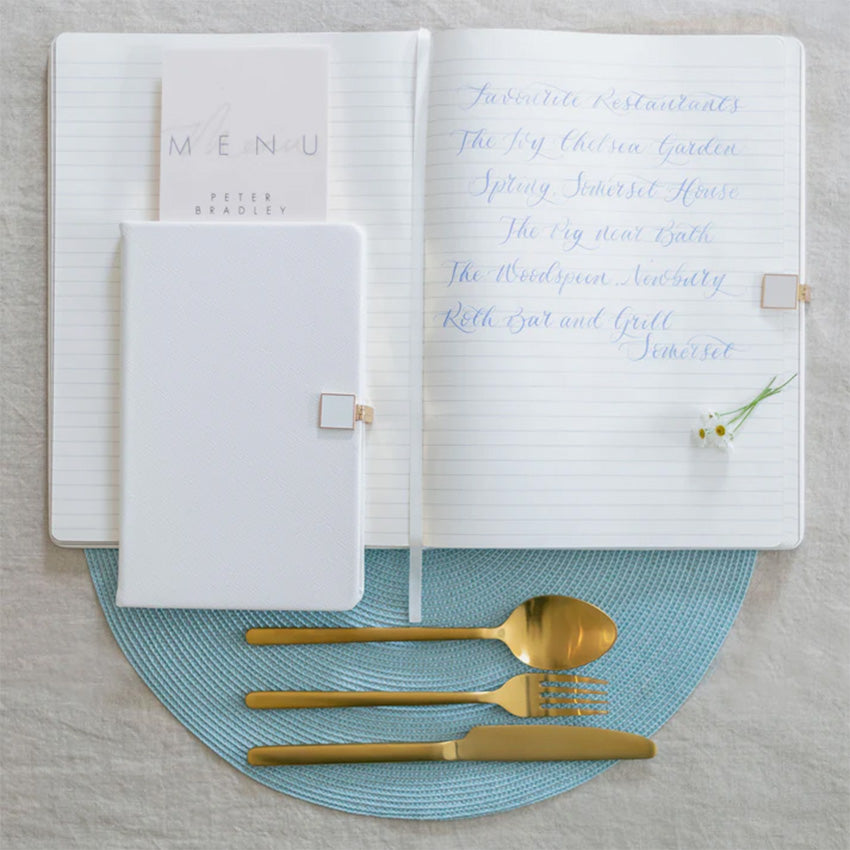 MENU
PETER
BRADLEY
Favourite Restaurants
The Ivy Chelsea Garden
Spring, Somerset House
The Pig near Bath
The Woodspeen, Newbury
Roth Bar and Grill
Somerset